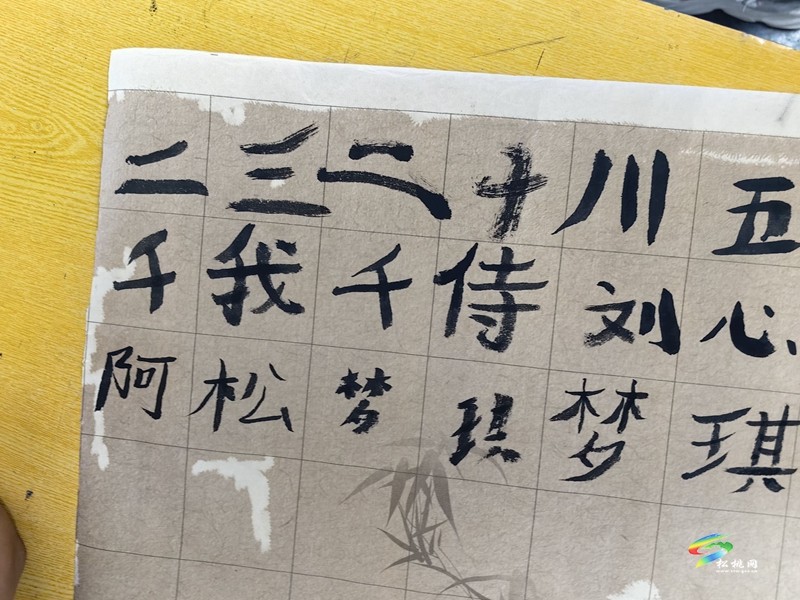 二三二十川五
千我千侍刘心
阿松梦琪梦琪
松桃网